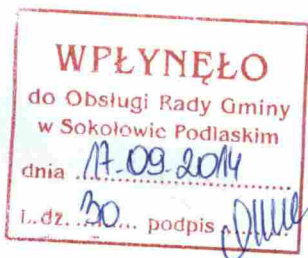 WPŁYNĘŁO
do Obsługi Rady Gminy
w Sokołowie Podlaskim
dnia 17-09-2014
L.dz. 30 podpis